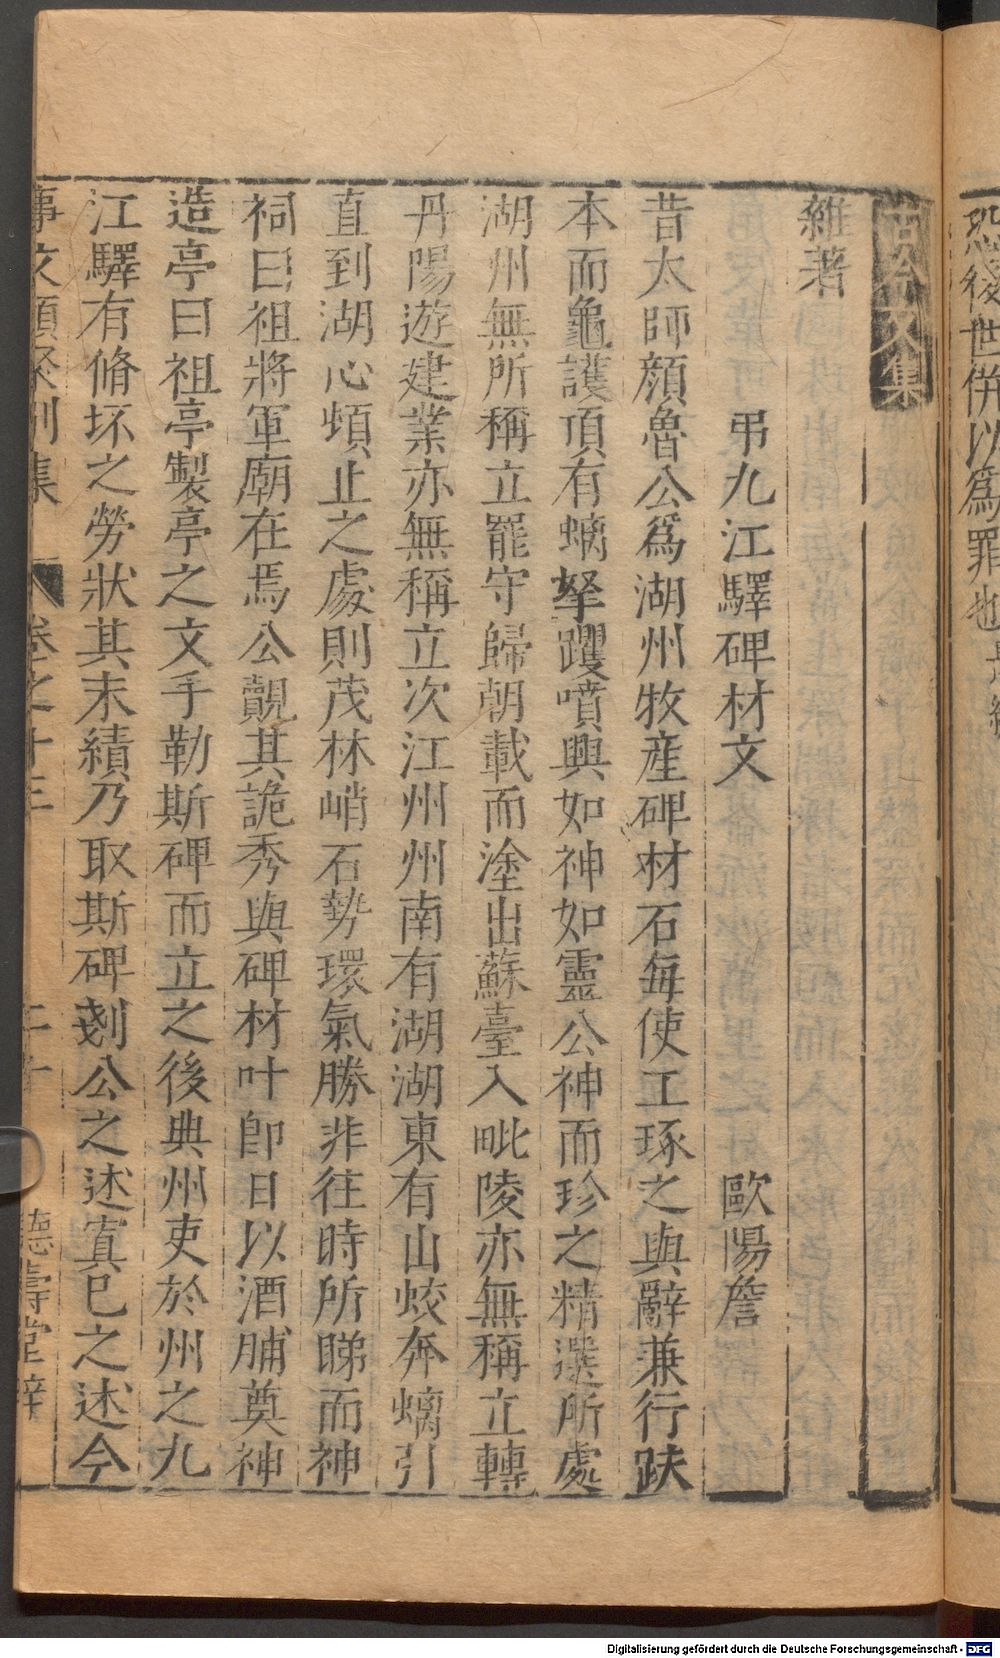 恐後世併以爲罪也
古今文集
雜著
弔九江驛碑材文 歐陽詹
昔太師顔魯公爲湖州牧産碑材石每使工琢之與辭兼行趺
本而龜護頂有螭拏躍噴興如神如靈公神而珍之精選所處
湖州無所稱立罷守歸朝載而塗出蘇臺入毗陵亦無稱立轉
丹陽遊建業亦無稱立次江州州南有湖湖東有山蛟奔螭引
直到湖心頓止之處則茂林峭石勢環氣勝非往時所睇而神
祠曰祖將軍廟在焉公覿其詭秀與碑材叶卽日以酒脯奠神
造亭曰祖亭製亭之文手勒斯碑而立之後典州吏於州之九
江驛有脩坏之勞狀其末績乃取斯碑剗公之述寘巳之述今
事文類聚別集 卷之十三 二十 德壽堂梓
Digitalisierung gefördert durch die Deutsche Forschungsgemeinschaft - DFG